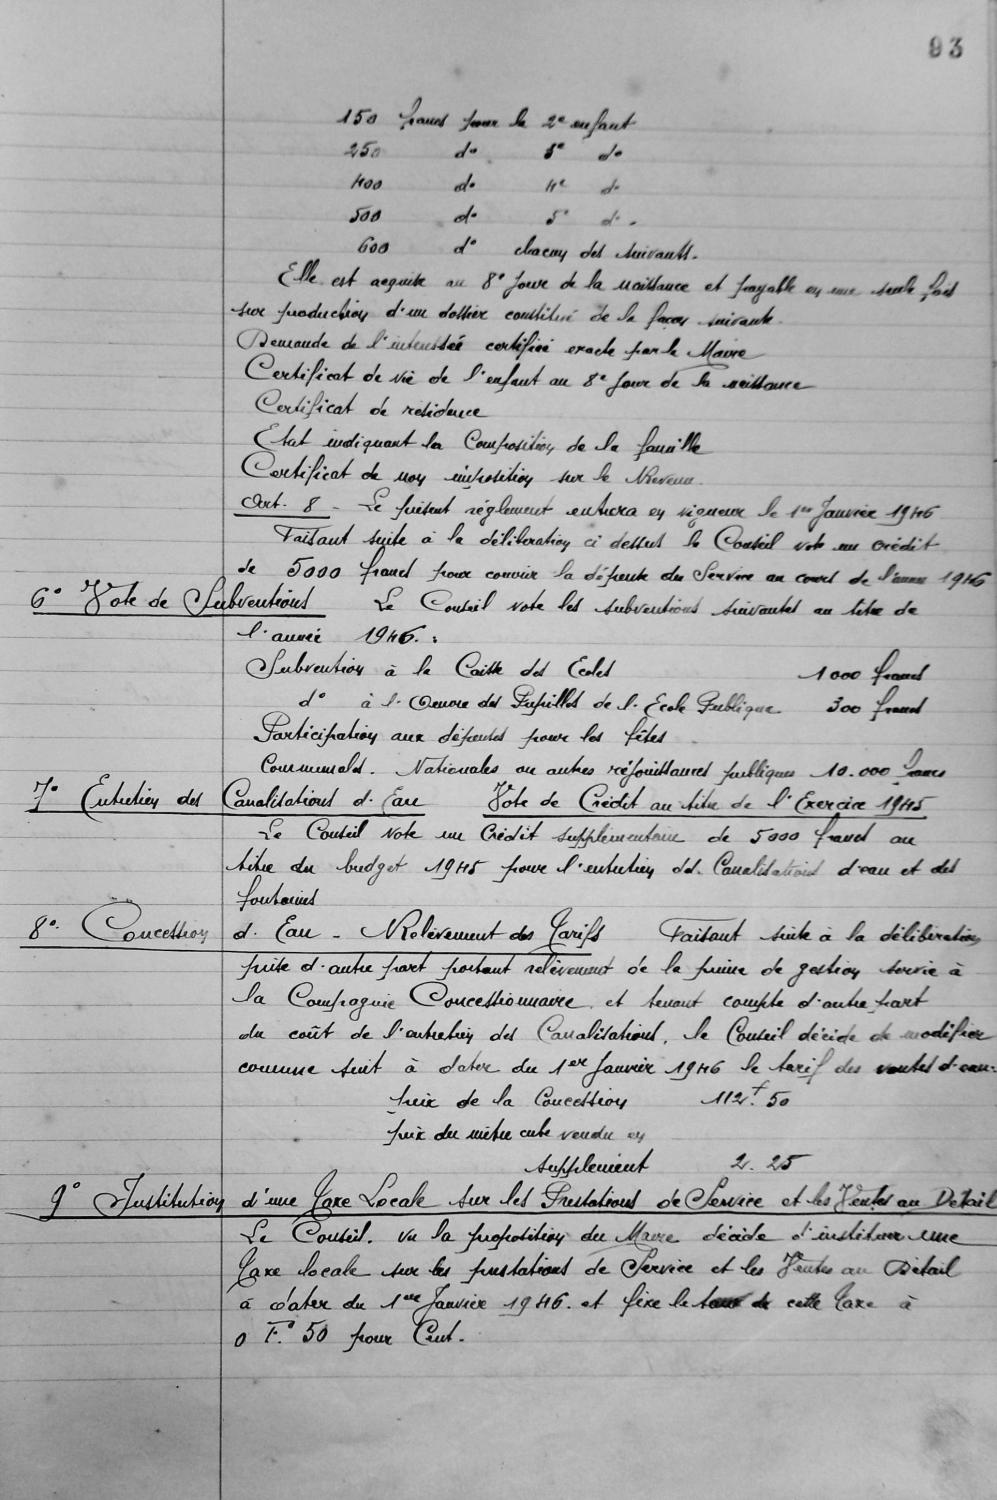 93
150 francs pour le 2e enfant
250 do 3e do
400 do 4e do
500 do 5e do
600 do chacun des suivants.
Elle est acquise au 8e Jour de la naissance et payable en une seule fois
sur production d'un dossier constitué de la façon suivante.
Demande de l'intéressée certifiée exacte par le Maire
Certificat de vie de l'enfant au 8e Jour de la naissance
Certificat de résidence
Etat indiquant la Composition de la famille
Certificat de non imposition sur le Revenu.
Art. 8 - Le présent règlement entrera en vigueur le 1er Janvier 1946
Faisant suite à la délibération ci dessus le Conseil vote un crédit
de 5000 francs pour couvrir la dépense du Service au cours de l'année 1946
6° Vote de Subventions Le Conseil vote les subventions suivantes au titre de
l'année 1946. :
Subvention à la Caisse des Ecoles 1000 francs
d° à l'Oeuvre des Pupilles de l'Ecole Publique 300 francs
Participation aux dépenses pour les fêtes
Communales. Nationales ou autres réjouissances publiques 10.000 francs
7° Entretien des Canalisations d'Eau Vote de Crédit au titre de l'Exercice 1945
Le Conseil vote un Crédit supplémentaire de 5000 francs au
titre du budget 1945 pour l'entretien des Canalisations d'eau et des
fontaines
8°. Concession d'Eau - Relèvement des Tarifs Faisant suite à la délibération
prise d'autre part portant relèvement de la prime de gestion servie à
la Compagnie Concessionnaire, et tenant compte d'autre part
du coût de l'entretien des Canalisations, le Conseil décide de modifier
comme suit à dater du 1er Janvier 1946 le tarif des ventes d'eau:
prix de la Concession 112f. 50
prix du mètre cube vendu en
supplément 2. 25
9° Institution d'une Taxe Locale sur les Prestations de Service et les Ventes au Détail
Le Conseil. vu la proposition du Maire décide d'instituer une
Taxe locale sur les prestations de Service et les Ventes au Détail
à dater du 1er Janvier 1946. et fixe le taux de cette Taxe à
0 F. 50 pour Cent.